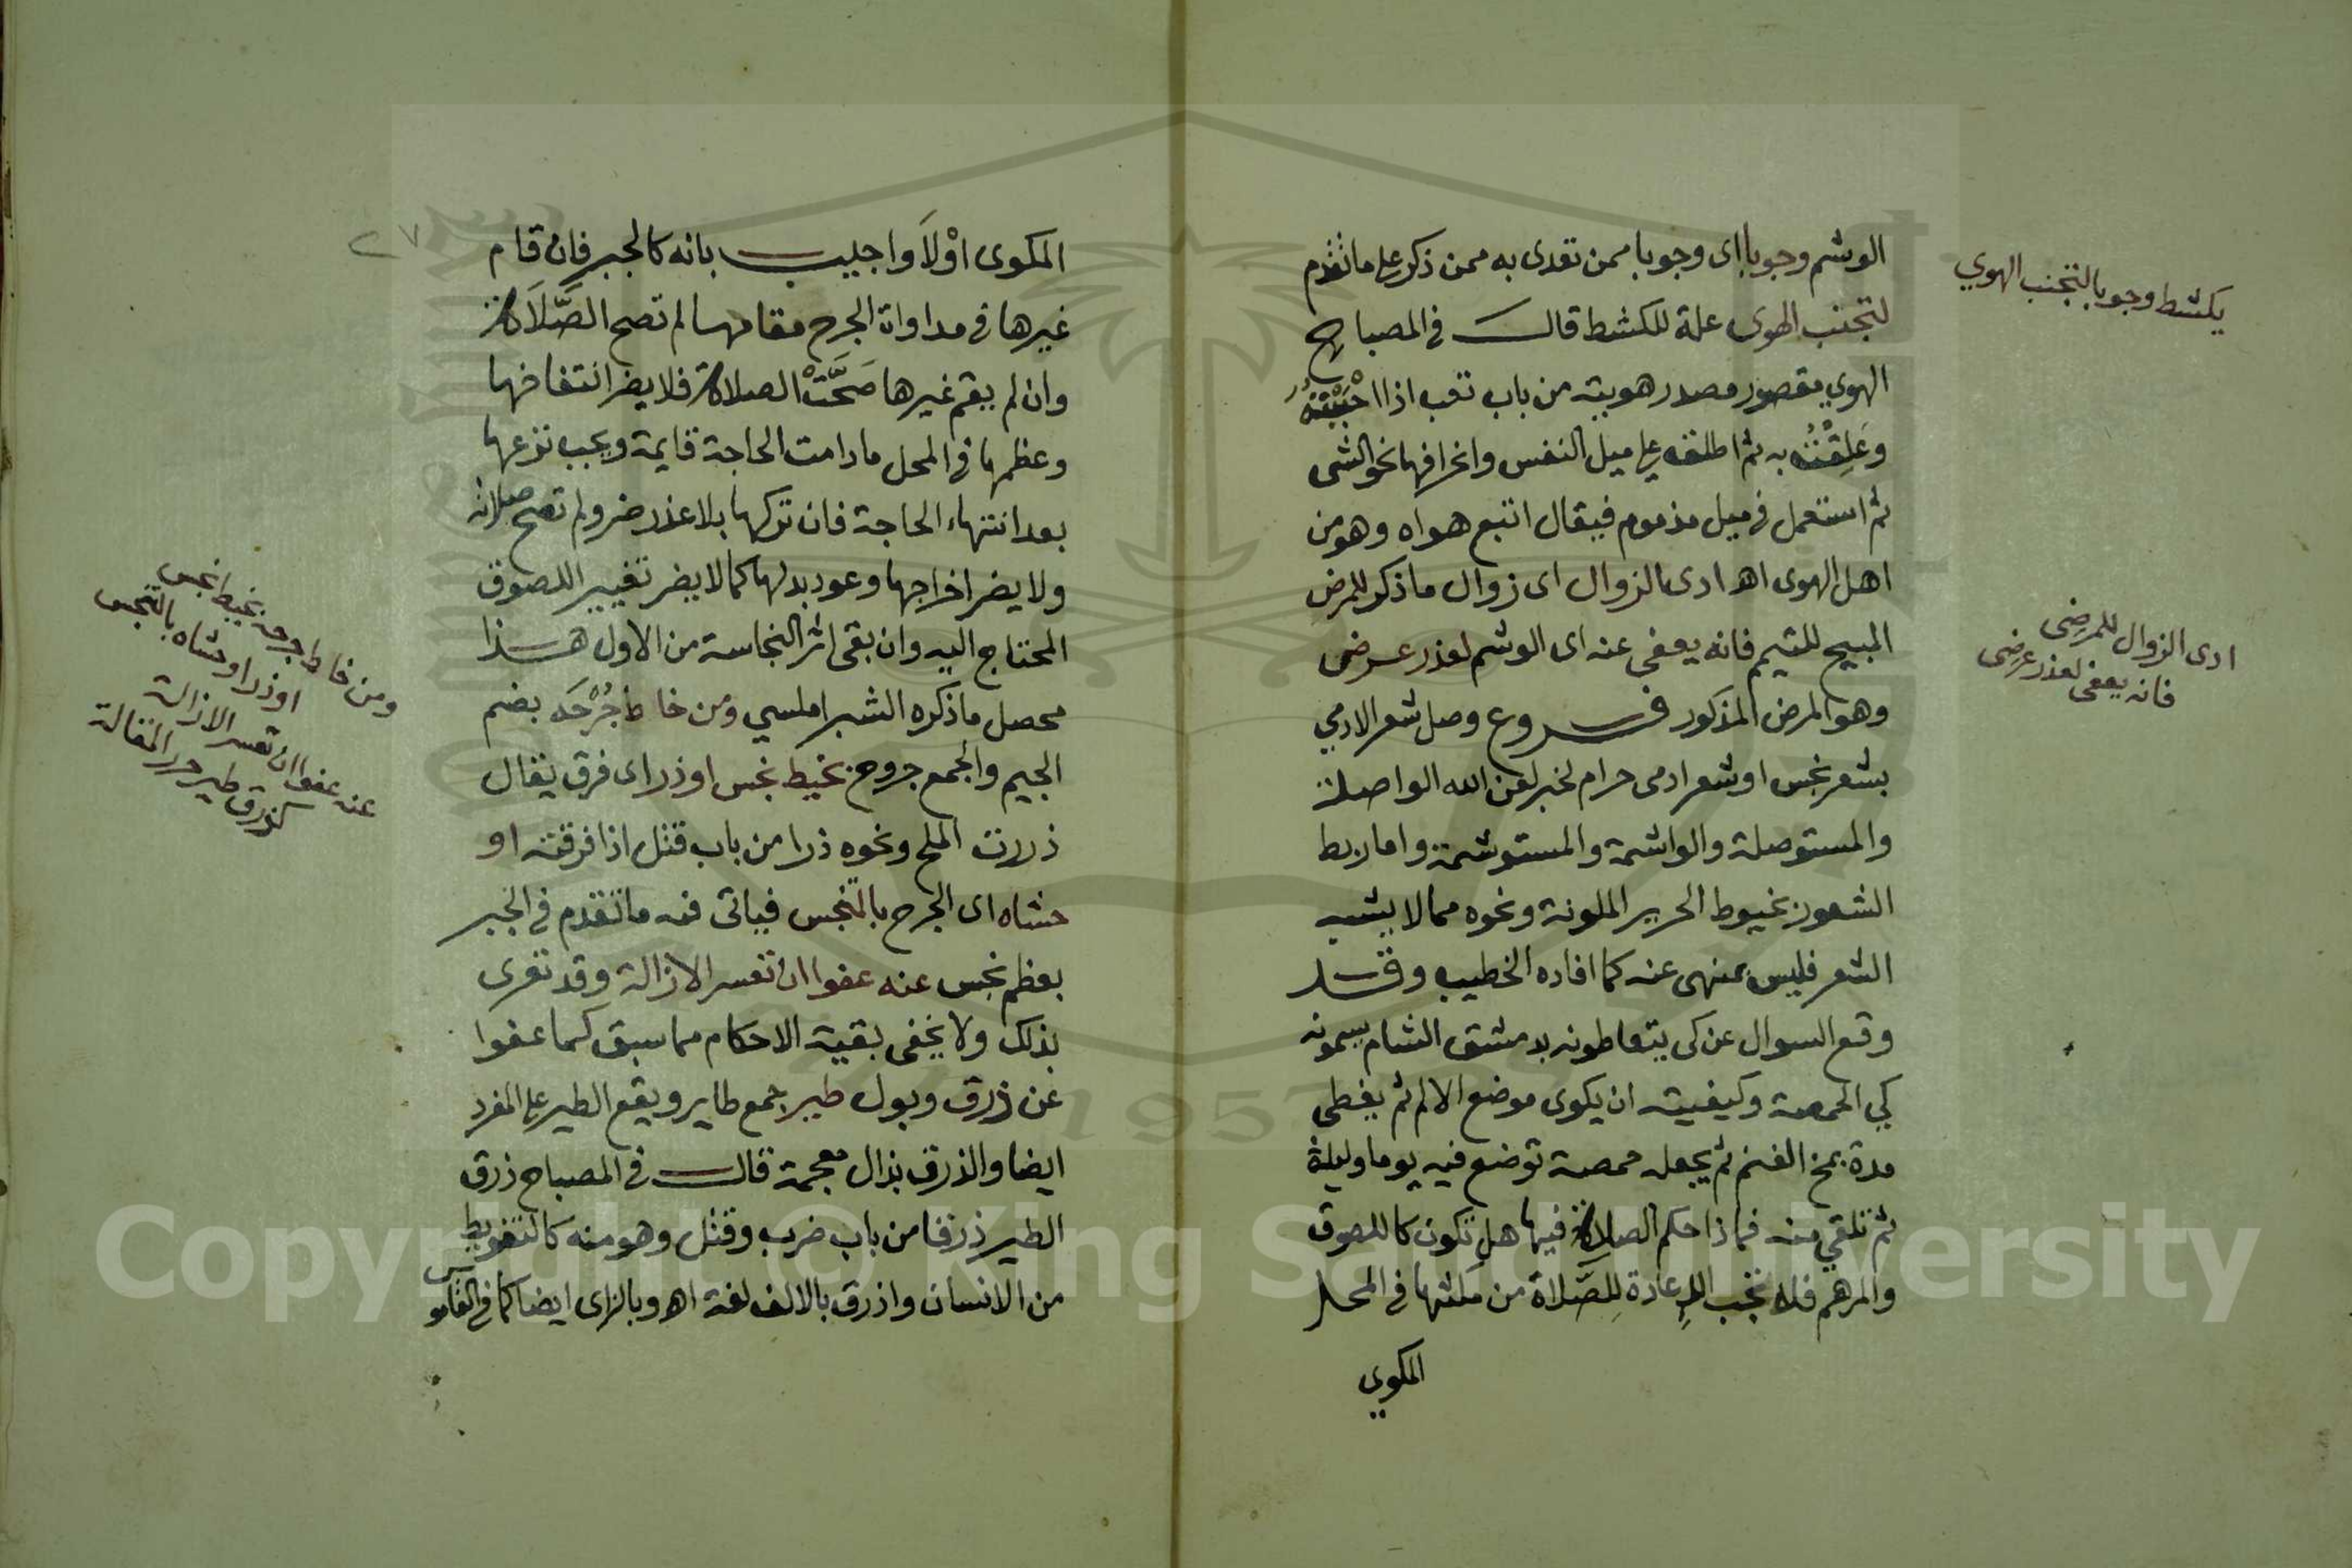 الوشم وجوبا اى وجوبا ممن تعدى به ممن ذكر على ما تقدم
لتجنب الهوى علة للكشط قال في المصباح
الهوي مقصور مصدر هويته من باب تعب اذا احْبَبْتَهُ
وَعَلِقْتُه به ثم اطلقه على ميل النفس وانحرافها نحو الشى
ثم استعمل في ميل مذموم فيقال اتبع هواه وهو من
اهل الهوى اهـ ادى الزوال اى زوال ما ذكر للمرض
المبيح للتيمم فانه يعفى عنه اى الوشم لعذر عرضى
وهو المرض المذكور فروع وصل شعر الادمي
بشعر نجس او شعر ادمى حرام لخبر لعن الله الواصلة
والمستوصلة والواشمة والمستوشمة واما ربط
الشعور بخيوط الحرير الملونة ونحوه مما لا يشبه
الشعر فليس بمنهى عنه كما افاده الخطيب وقد
وقع السوال عن كى يتعاطونه بدمشق الشام يسمونه
كي الحمصة وكيفيته ان يكوى موضع الالم ثم يغطى
مدة بمخ الغنم ثم يجعل حمصة توضع فيه يوما وليلة
ثم تلقى منه فماذا حكم الصلاة فيها هل تكون كاللصوق
والمرهم فلا تجب الاِعادة لِلصَّلاة من مكثها في المحل
المكوي
يكشط وجوبا لتجنب الهوي
ادى الزوال للمرض
فانه يعفى لعذر عرضى
٢٧
المكوى اوْلَا واجيب بانه كالجبر فان قام
غيرها في مداواة الجرح مقامها لم تصح الصَّلَاة
وان لم يقم غيرها صَحَّتْ الصلاة فلا يضر انتفاخها
وعظمها في المحل ما دامت الحاجة قايمة ويجب نزعها
بعد انتهاء الحاجة فان تركها بلا عذر ضر ولم تصح صلاته
ولا يضر اخراجها وعود بدلها كما لا يضر تغيير اللصوق
المحتاج اليه وان بقى اثر النجاسة من الاول هذا
محصل ما ذكره الشبراملسي ومن خاط جُرْحَه بضم
الجيم والجمع جروح بخيط نجس او ذر اى فرق يقال
ذررت الملح ونحوه ذرا من باب قتل اذا فرقته او
حشاه اى الجرح بالنجس فياتى فيه ما تقدم في الجبر
بعظم نجس عنه عفوا ان تعسر الازالة وقد تعرى
بذلك ولا يخفى بقية الاحكام مما سبق كما عفوا
عن ذرق وبول طير جمع طاير ويقع الطير على المفرد
ايضا والذرق بذال معجمة قال في المصباح ذرق
الطير ذرقا من باب ضرب وقتل وهو منه كالتغويط
من الانسان واذرق بالالف لغة اهـ وبالزاى ايضا كما في القاموس
ومن خاط جرحه بخيط نجس
او ذر او حشاه بالنجس
عنه عفوا ان تعسر الازالة
كذرق طير
Copyright © King Saud University
1957